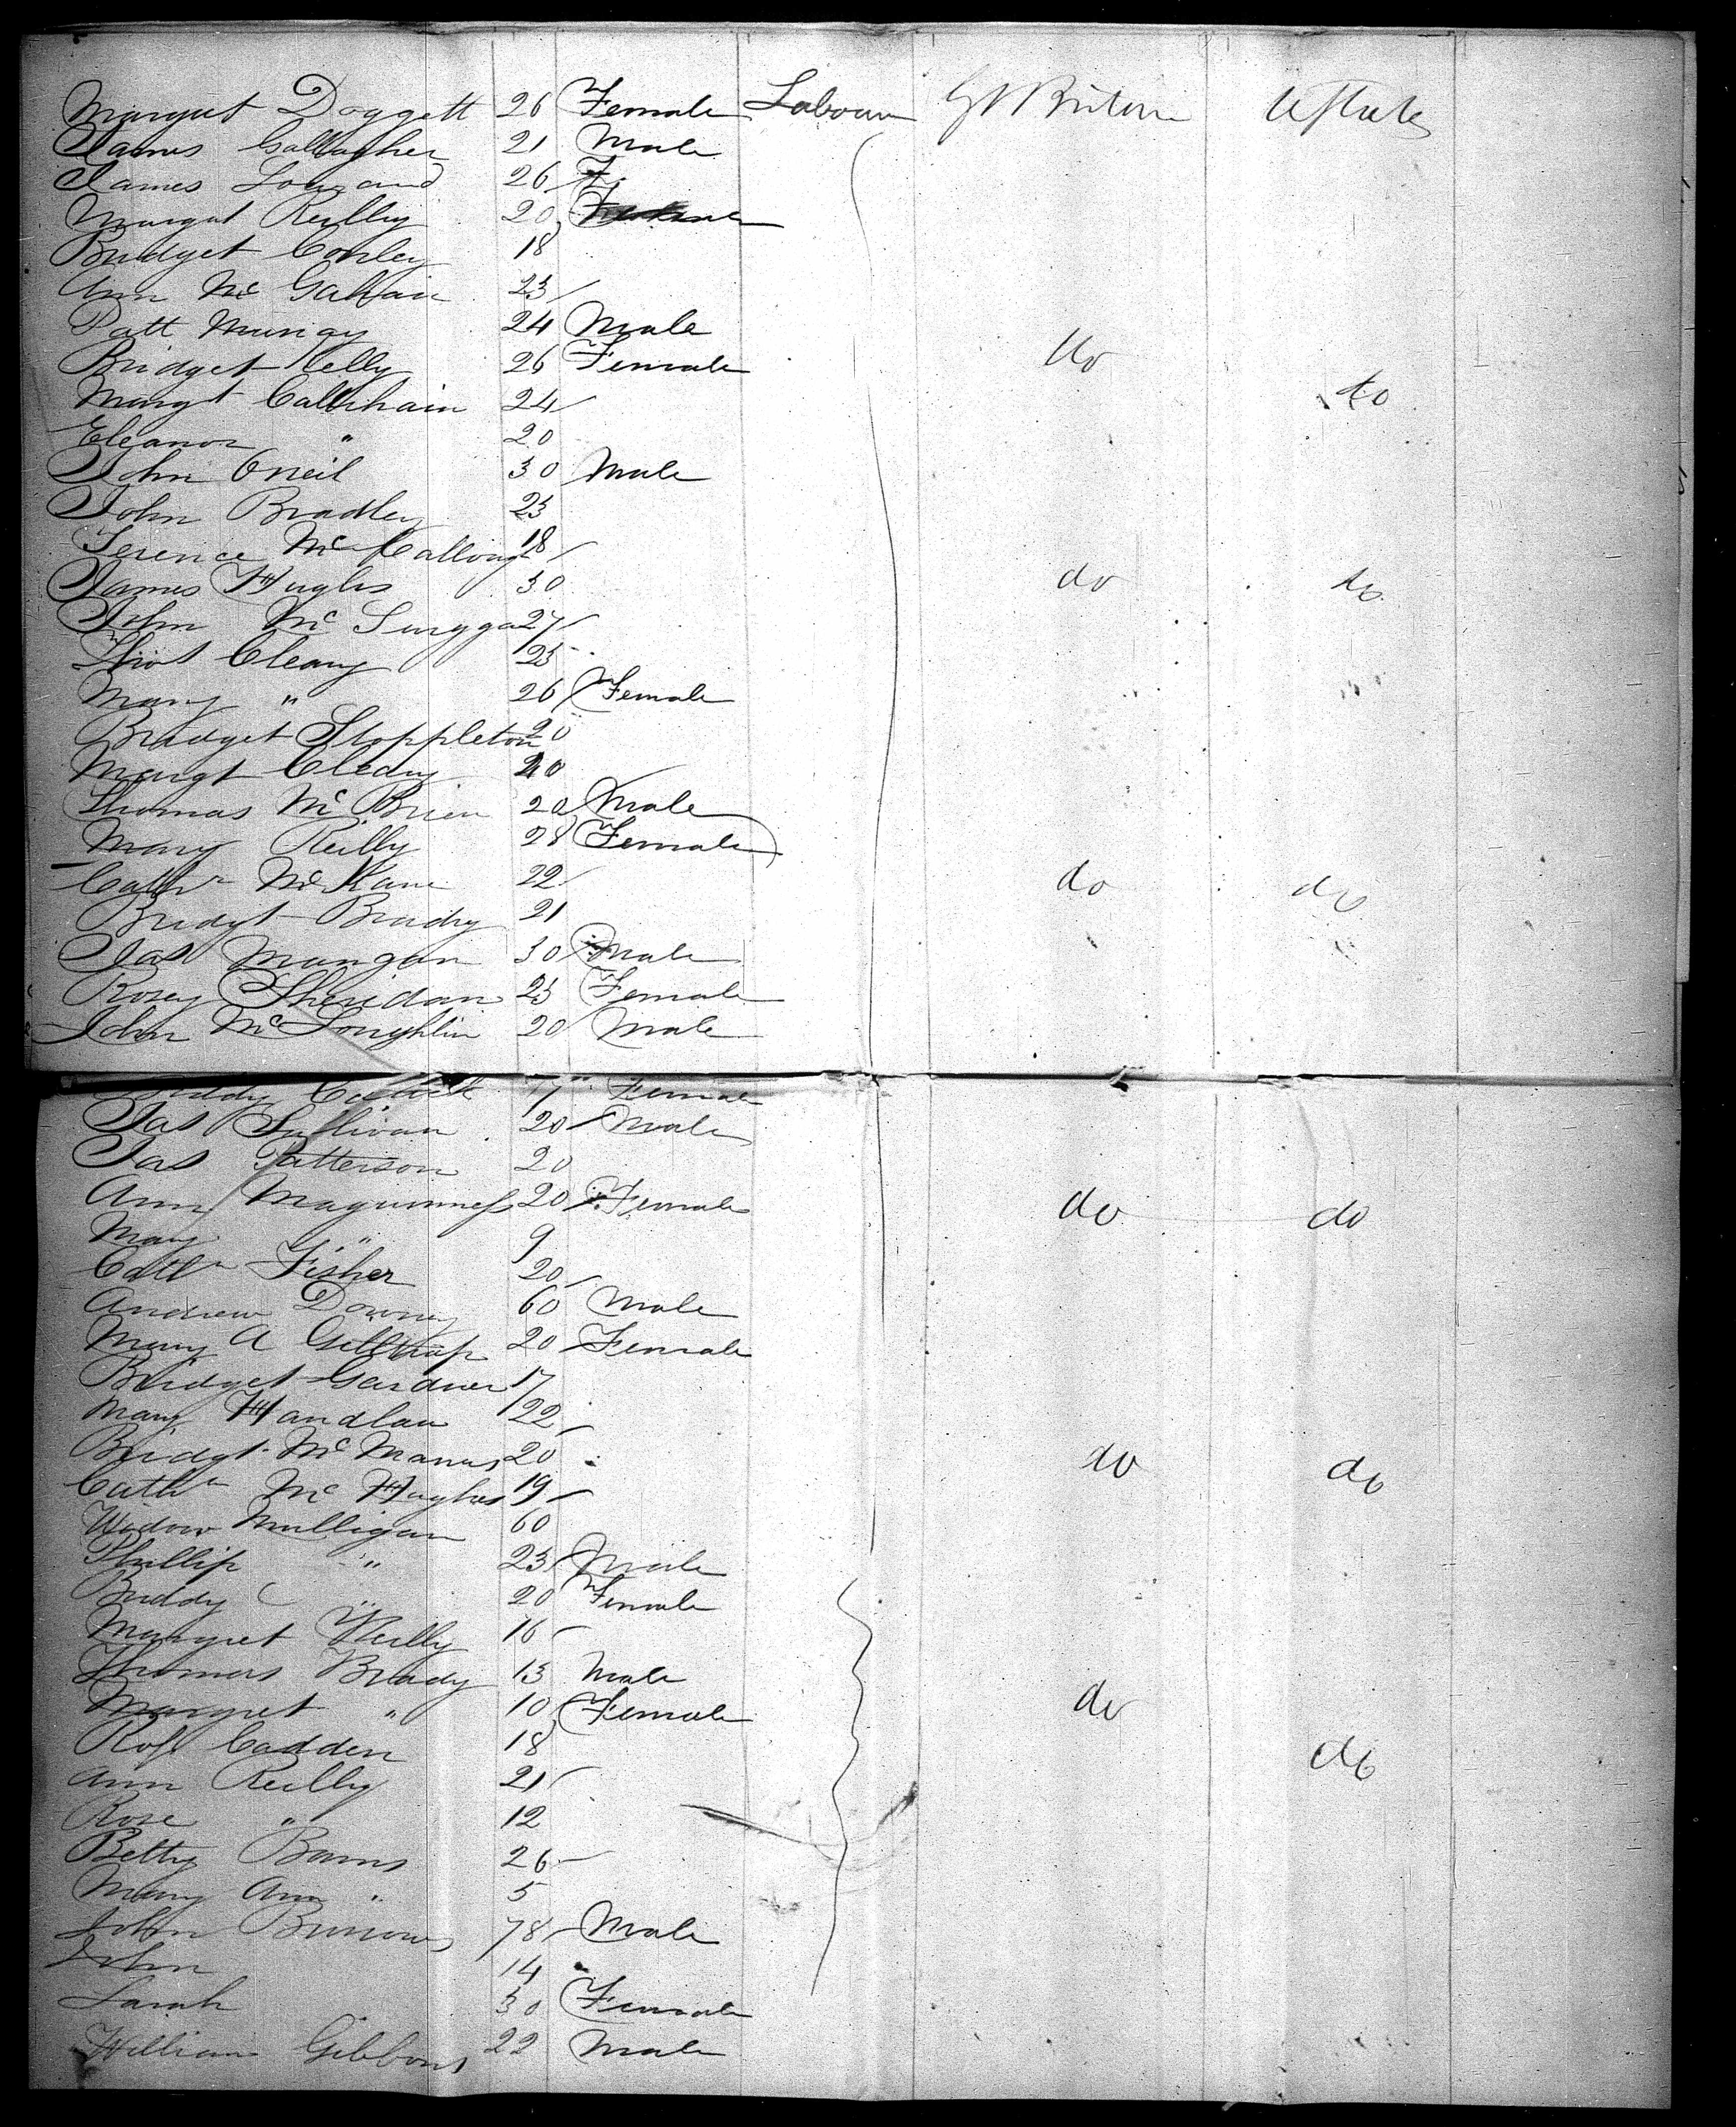 Margret Doggett 26 Female Labour Gt Britain U States
James Gallagher 21 Male
James 26 F
Margat Reilly 20 Female
Bridget Conley 18
Ann Mc 23
Patt Murray 24 Male
Bridget Kelly 26 Female do
Margt Callihain 24 do
Eleanor " 20
John Oneil 30 Male
John Bradley 23
Terence Mc 18
James Hughs 30 do do
John Mc 27
Thos Cleary 25
Mary " 26 Female
Bridget Stoppleton 20
Margt Cleary 20
Thomas Mc Brien 20 Male
Mary Reilly 28 Female
Cathn Mc Kane 22 do do
Bridgt Brady 21
Jas Mangan 30 Male
Rosey Sheridan 23 Female
John McLoughlin 20 Male
Biddy Female
Jas Sullivan 20 Male
Jas Patterson 20
Ann Maguinness 20 Female do do
Mary " 9
Cathn Fisher 20
Andrew Downey 60 Male
Mary A Gilltrap 20 Female
Bridget Gardner 17
Mary Handlan 22
Bridgt Mc Manus 20 do do
Cathn Mc Hughes 19
Widow Mulligan 60
Phillip " 23 Male
Biddy " 20 Female
Margret Reilly 16
Thomas Brady 13 Male
Margret " 10 Female do
Ross Cadden 18 do
Ann Reilly 21
Rose " 12
Betty Barns 26
Mary Ann " 5
John Burrows 78 Male
John 14
Sarah 30 Female
William Gibbons 22 Male